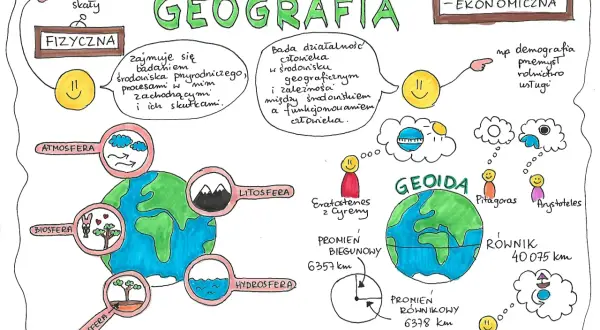 skały
GEOGRAFIA
-EKONOMICZNA
FIZYCZNA
zajmuje się
badaniem
środowiska przyrodniczego,
procesami w nim
zachodzącymi
i ich skutkami.
Bada działalność
człowieka
w środowisku
geograficznym
i zależności
między środowiskiem
a funkcjonowaniem
człowieka.
np demografia
przemysł
rolnictwo
usługi
ATMOSFERA
LITOSFERA
BIOSFERA
HYDROSFERA
SFERA
Eratostenes
z Cyreny
GEOIDA
Pitagoras
Arystoteles
PROMIEŃ
BIEGUNOWY
6357 km
RÓWNIK
40 075 km
PROMIEŃ
RÓWNIKOWY
6378 km